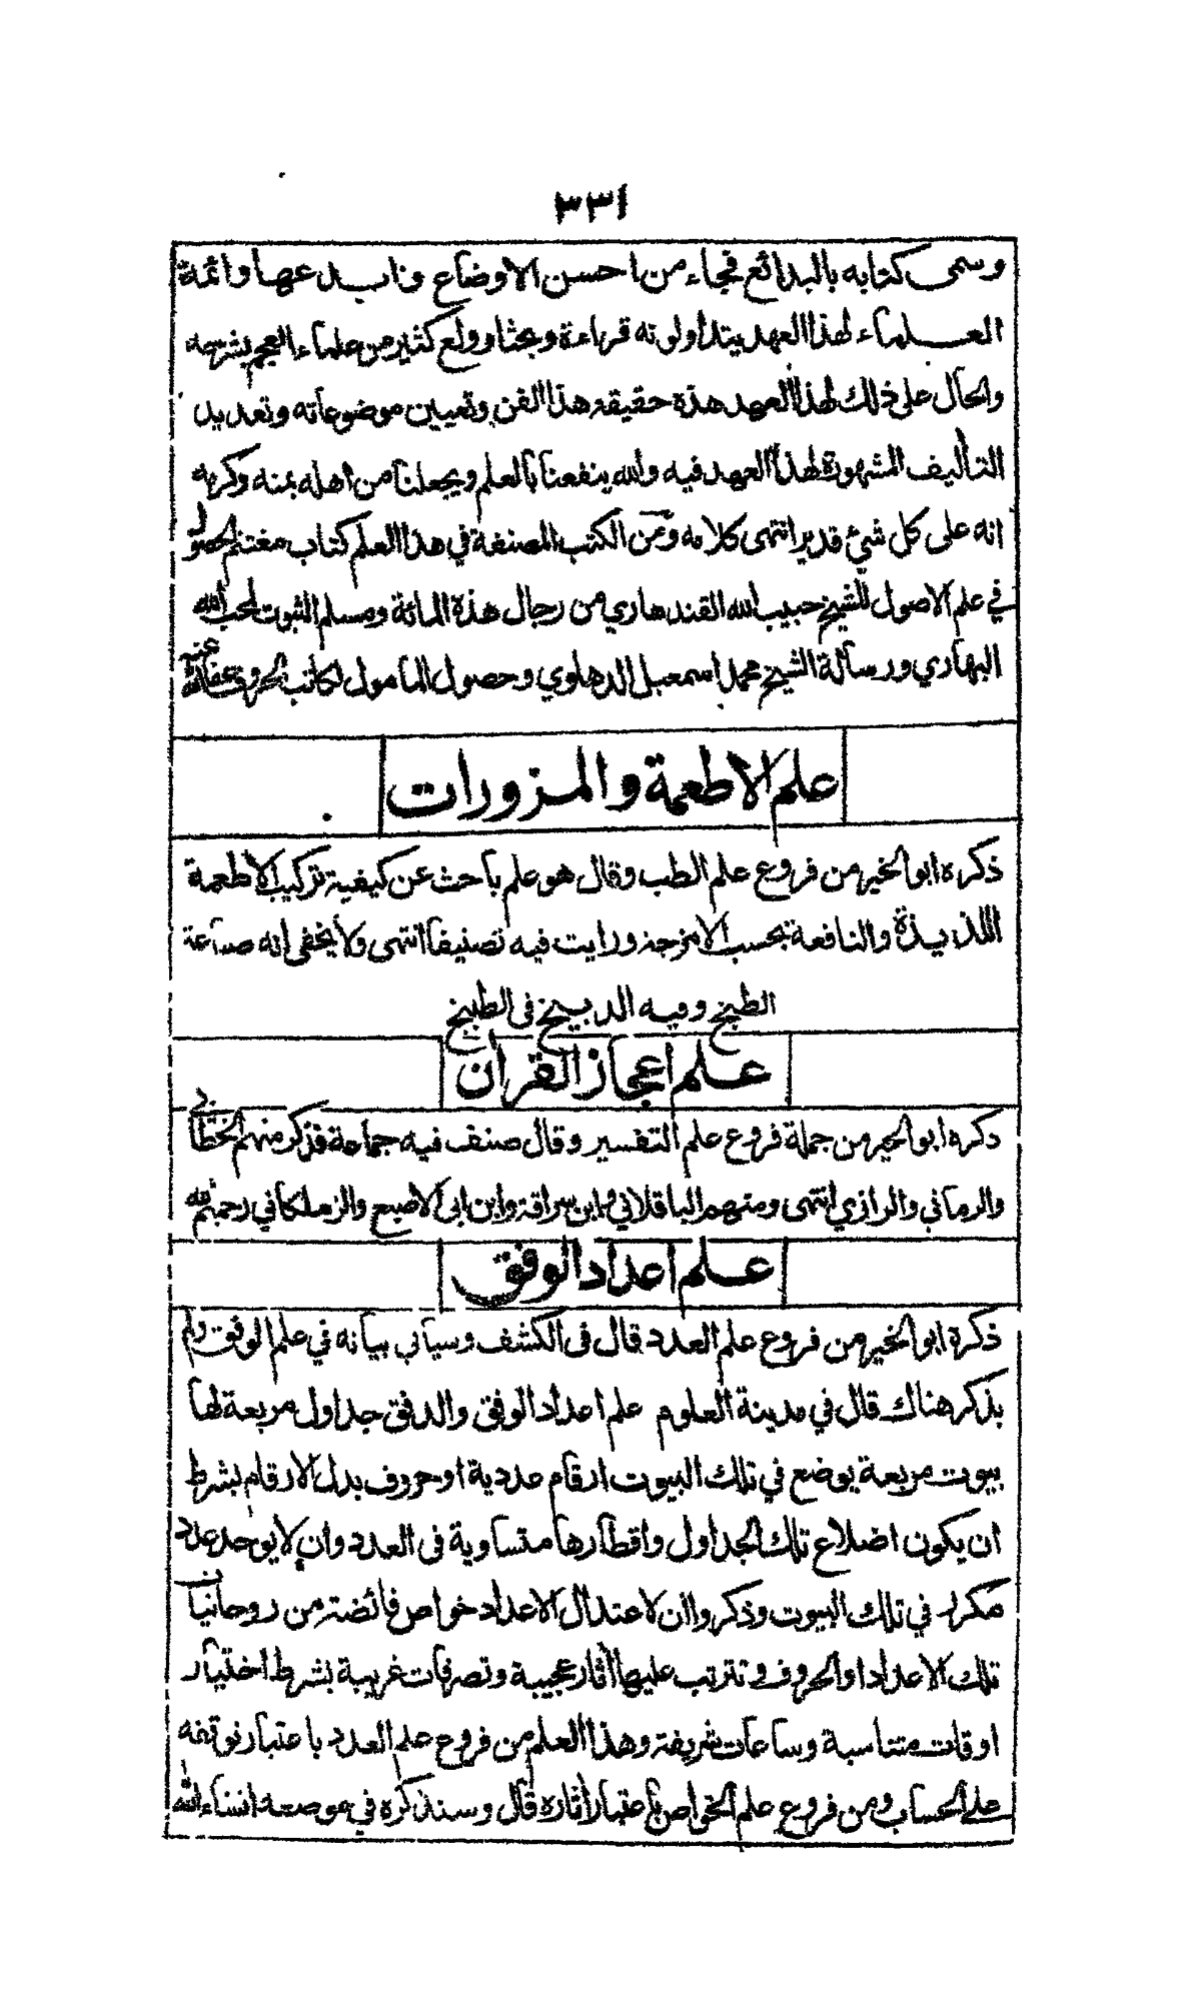 ٣٣١
وسمى كتابه بالبدائع فجاء من احسن الاوضاع وابدعها وائمة
العلماء لهذا العهد يتداولونه قراءة وبحثا وولع كثير من علماء العجم بشرحه
والحال على ذلك لهذا العهد هذه حقيقة هذا الفن وتعيين موضوعاته وتعديد
التأليف المشهورة لهذا العهد فيه والله ينفعنا بالعلم ويجعلنا من اهله بمنه وكرمه
انه على كل شئ قدير انتهى كلامه ومن الكتب المصنفة في هذا العلم كتاب مغتنم الحصول
في علم الاصول للشيخ حبيب الله القندهاري من رجال هذه المائة ومسلم الثبوت لمحب الله
البهاري ورسالة الشيخ محمد اسمعيل الدهلوي وحصول المامول لكاتب الحروف عفا الله عنه
علم الاطعمة والمزورات
ذكره ابو الخير من فروع علم الطب وقال هو علم باحث عن كيفية تركيب الاطعمة
اللذيذة والنافعة بحسب الامزجة ورايت فيه تصنيفا انتهى ولا يخفى انه صناعة
الطبخ وفيه الدبيخ في الطبيخ
علم اعجاز القران
ذكره ابو الخير من جملة فروع علم التفسير وقال صنف فيه جماعة فذكر منهم الخطابي
والرماني والرازي انتهى ومنهم الباقلاني وابن سراقة وابن ابى الاصبع والزملكاني رحمهم الله
علم اعداد الوفق
ذكره ابو الخير من فروع علم العدد قال فى الكشف وسياتي بيانه في علم الوفق ولم
يذكر هناك قال في مدينة العلوم علم اعداد الوفق والدفق جداول مربعة لها
بيوت مربعة يوضع في تلك البيوت ارقام عددية او حروف بدل الارقام بشرط
ان يكون اضلاع تلك الجداول واقطارها متساوية فى العدد وان لا يوجد عدد
مكرر في تلك البيوت وذكروا ان لاعتدال الاعداد خواص فائضة من روحانيات
تلك الاعداد او الحروف وتترتب عليها اثار عجيبة وتصرفات غريبة بشرط اختيار
اوقات متناسبة وساعات شريفة وهذا العلم من فروع علم العدد باعتبار توقفه
على الحساب ومن فروع علم الخواص باعتبار اثاره قال وسنذكره في موضعه انشاء الله